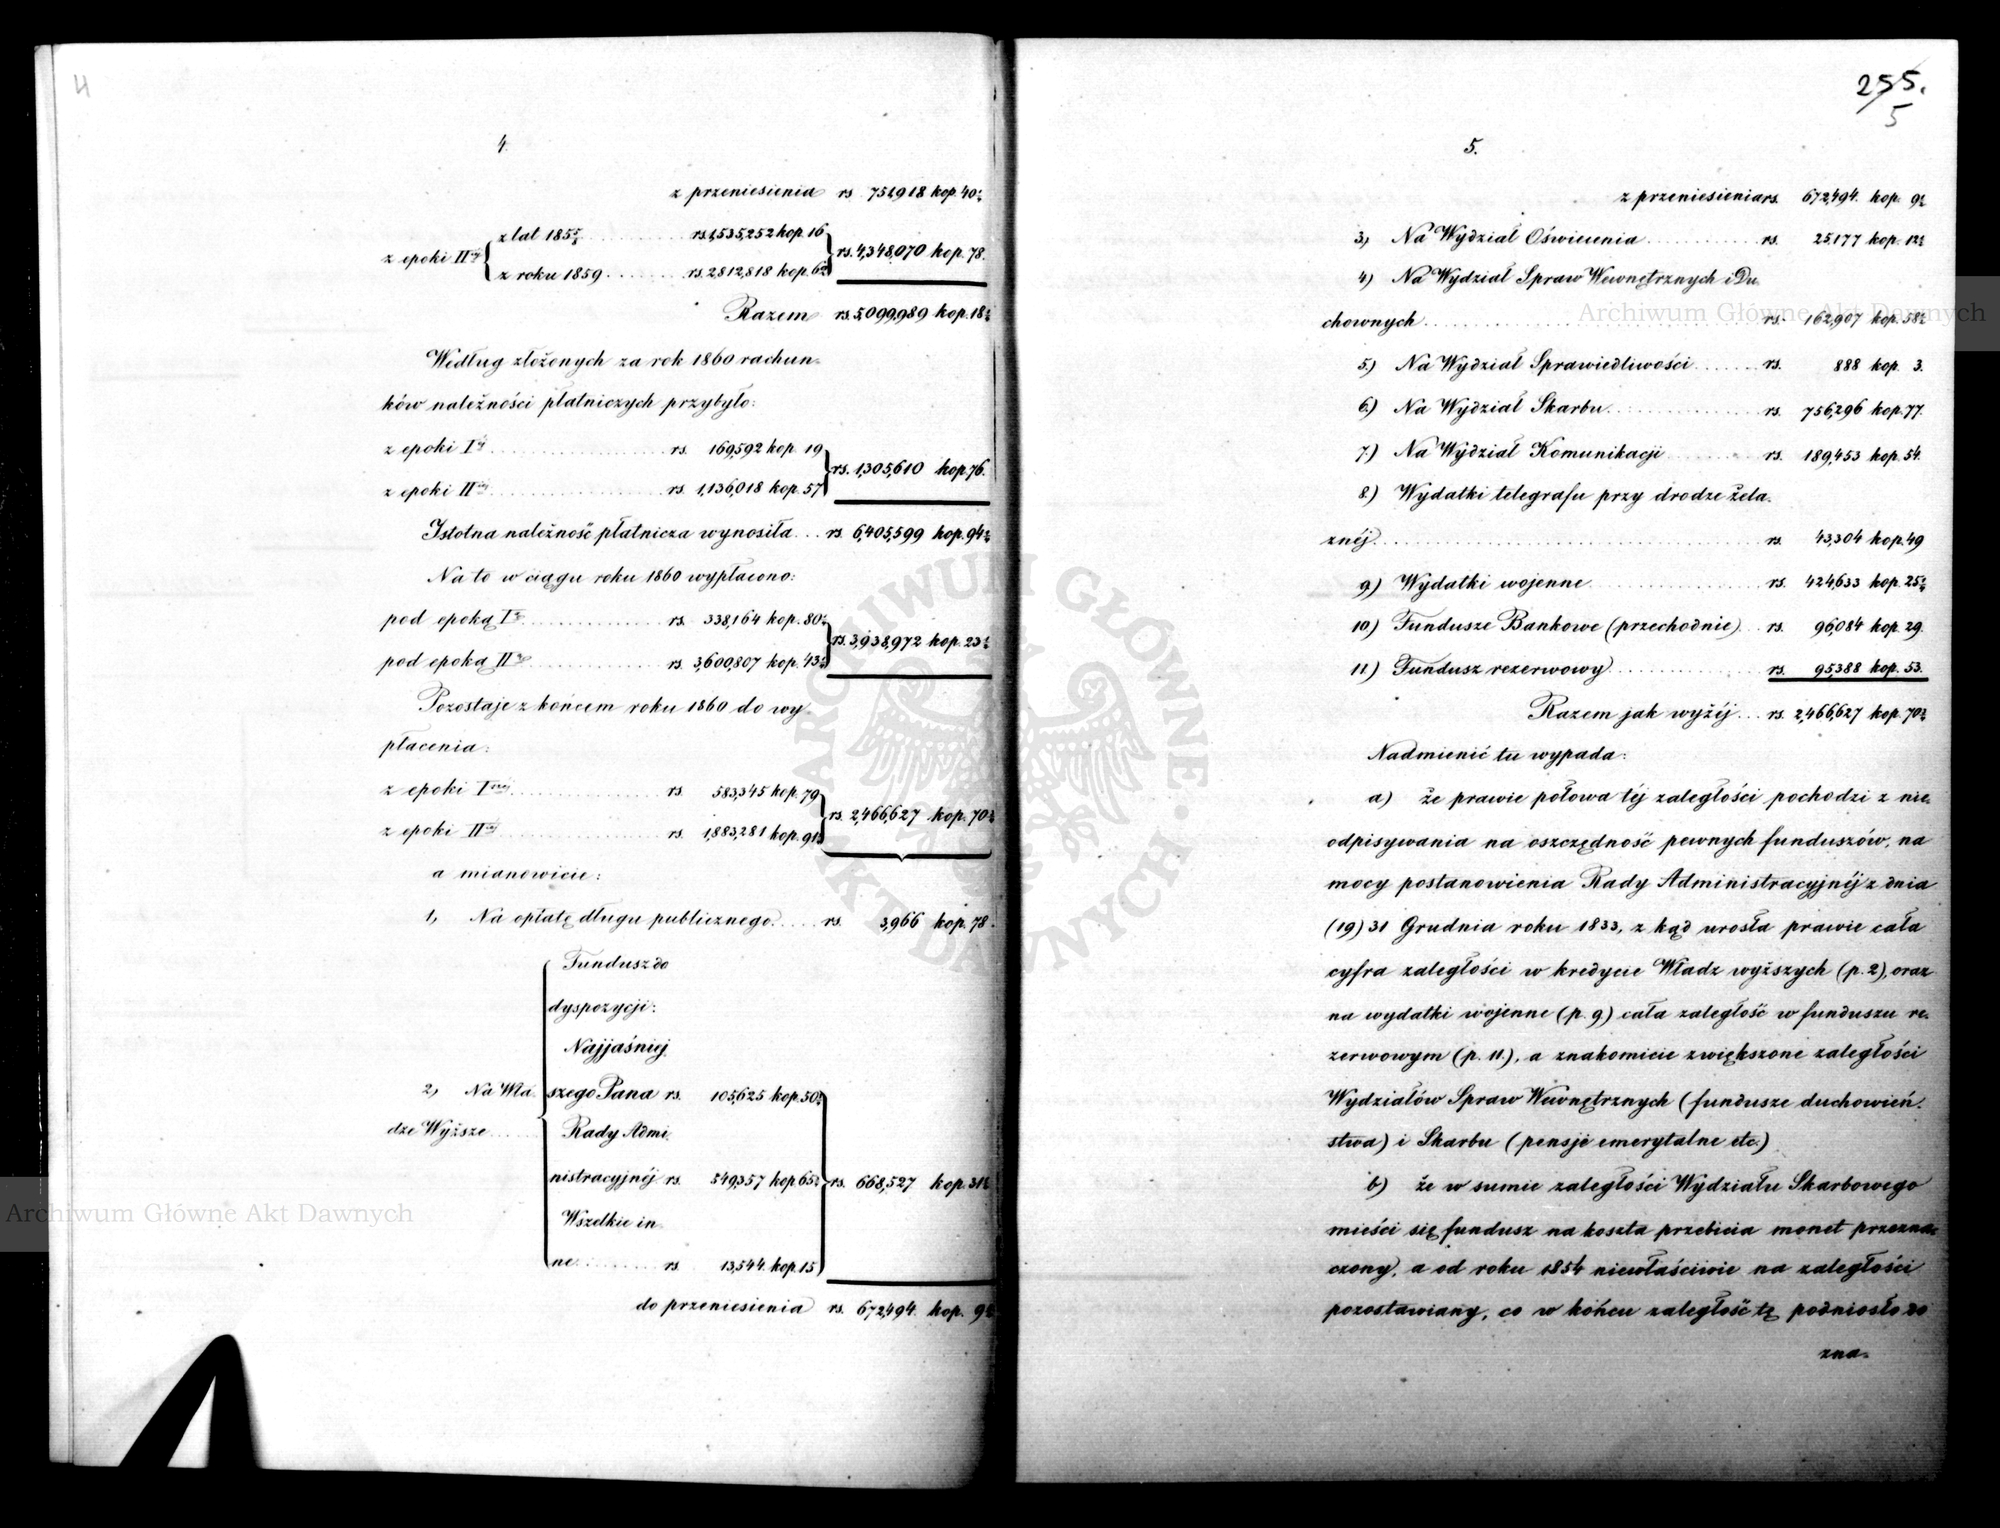 4
4.
z przeniesienia rs. 751,918 kop. 40½
z epoki IIéj
z lat 185⅞ rs. 1,535,252 kop. 16
z roku 1859 rs. 2,812,818 kop. 62
rs. 4,348,070 kop. 78.
Razem rs. 5,099,989 kop. 18½
Według złożonych za rok 1860 rachun-
ków należności płatniczych przybyło:
z epoki Iéj rs. 169,592 kop. 19
z epoki IIéj rs. 1,136,018 kop. 57
rs. 1,305,610 kop. 76.
Istotna należność płatnicza wynosiła rs. 6,405,599 kop. 94½
Na to w ciągu roku 1860 wypłacono:
pod epoką Ią rs. 338,164 kop. 80½
pod epoką IIą rs. 3,600,807 kop. 43½
rs. 3,938,972 kop. 23½
Pozostaje z końcem roku 1860 do wy-
płacenia:
z epoki Iéj rs. 583,345 kop. 79
z epoki IIéj rs. 1,883,281 kop. 91½
rs. 2,466,627 kop. 70½
a mianowicie:
1, Na opłatę długu publicznego rs. 3,966 kop. 78.
2, Na Wła-
dze Wyższe
Fundusz do
dyspozycji:
Najjaśniej-
szego Pana rs. 105,625 kop. 50½
Rady Admi-
nistracyjnéj rs. 549,357 kop. 65½
Wszelkie in-
ne rs. 13,544 kop. 15
rs. 668,527 kop. 31½
do przeniesienia rs. 672,494. kop. 9½
255.
5
5.
z przeniesienia rs. 672,494. kop. 9½
3, Na Wydział Oświecenia rs. 25,177 kop. 12½
4) Na Wydział Spraw Wewnętrznych i Du-
chownych rs. 162,907 kop. 58½
5.) Na Wydział Sprawiedliwości rs. 888 kop. 3.
6.) Na Wydział Skarbu rs. 756,296 kop. 77.
7.) Na Wydział Komunikacji rs. 189,453 kop. 54.
8.) Wydatki telegrafu przy drodze żela-
znéj rs. 43,304 kop. 49
9.) Wydatki wojenne rs. 424,633 kop. 25½
10.) Fundusze Bankowe (przechodnie) rs. 96,084 kop. 29.
11.) Fundusz rezerwowy rs. 95,388 kop. 53.
Razem jak wyżéj rs. 2,466,627 kop. 70½
Nadmienić tu wypada:
a) że prawie połowa téj zaległości pochodzi z nie-
odpisywania na oszczędność pewnych funduszów, na
mocy postanowienia Rady Administracyjnéj z dnia
(19) 31 Grudnia roku 1833, z kąd urosła prawie cała
cyfra zaległości w kredycie Władz wyższych (p. 2), oraz
na wydatki wojenne (p. 9.) cała zaległość w funduszu re-
zerwowym (p. 11.), a znakomicie zwiększone zaległości
Wydziałów Spraw Wewnętrznych (fundusze duchowień-
stwa) i Skarbu (pensje emerytalne etc.)
b) że w sumie zaległości Wydziału Skarbowego
mieści się fundusz na koszta przebicia monet przezna-
czony, a od roku 1854 niewłaściwie na zaległości
pozostawiany, co w końcu zaległość tę podniosło do
zna-
Archiwum Główne Akt Dawnych
Archiwum Główne Akt Dawnych
ARCHIWUM GŁÓWNE AKT DAWNYCH